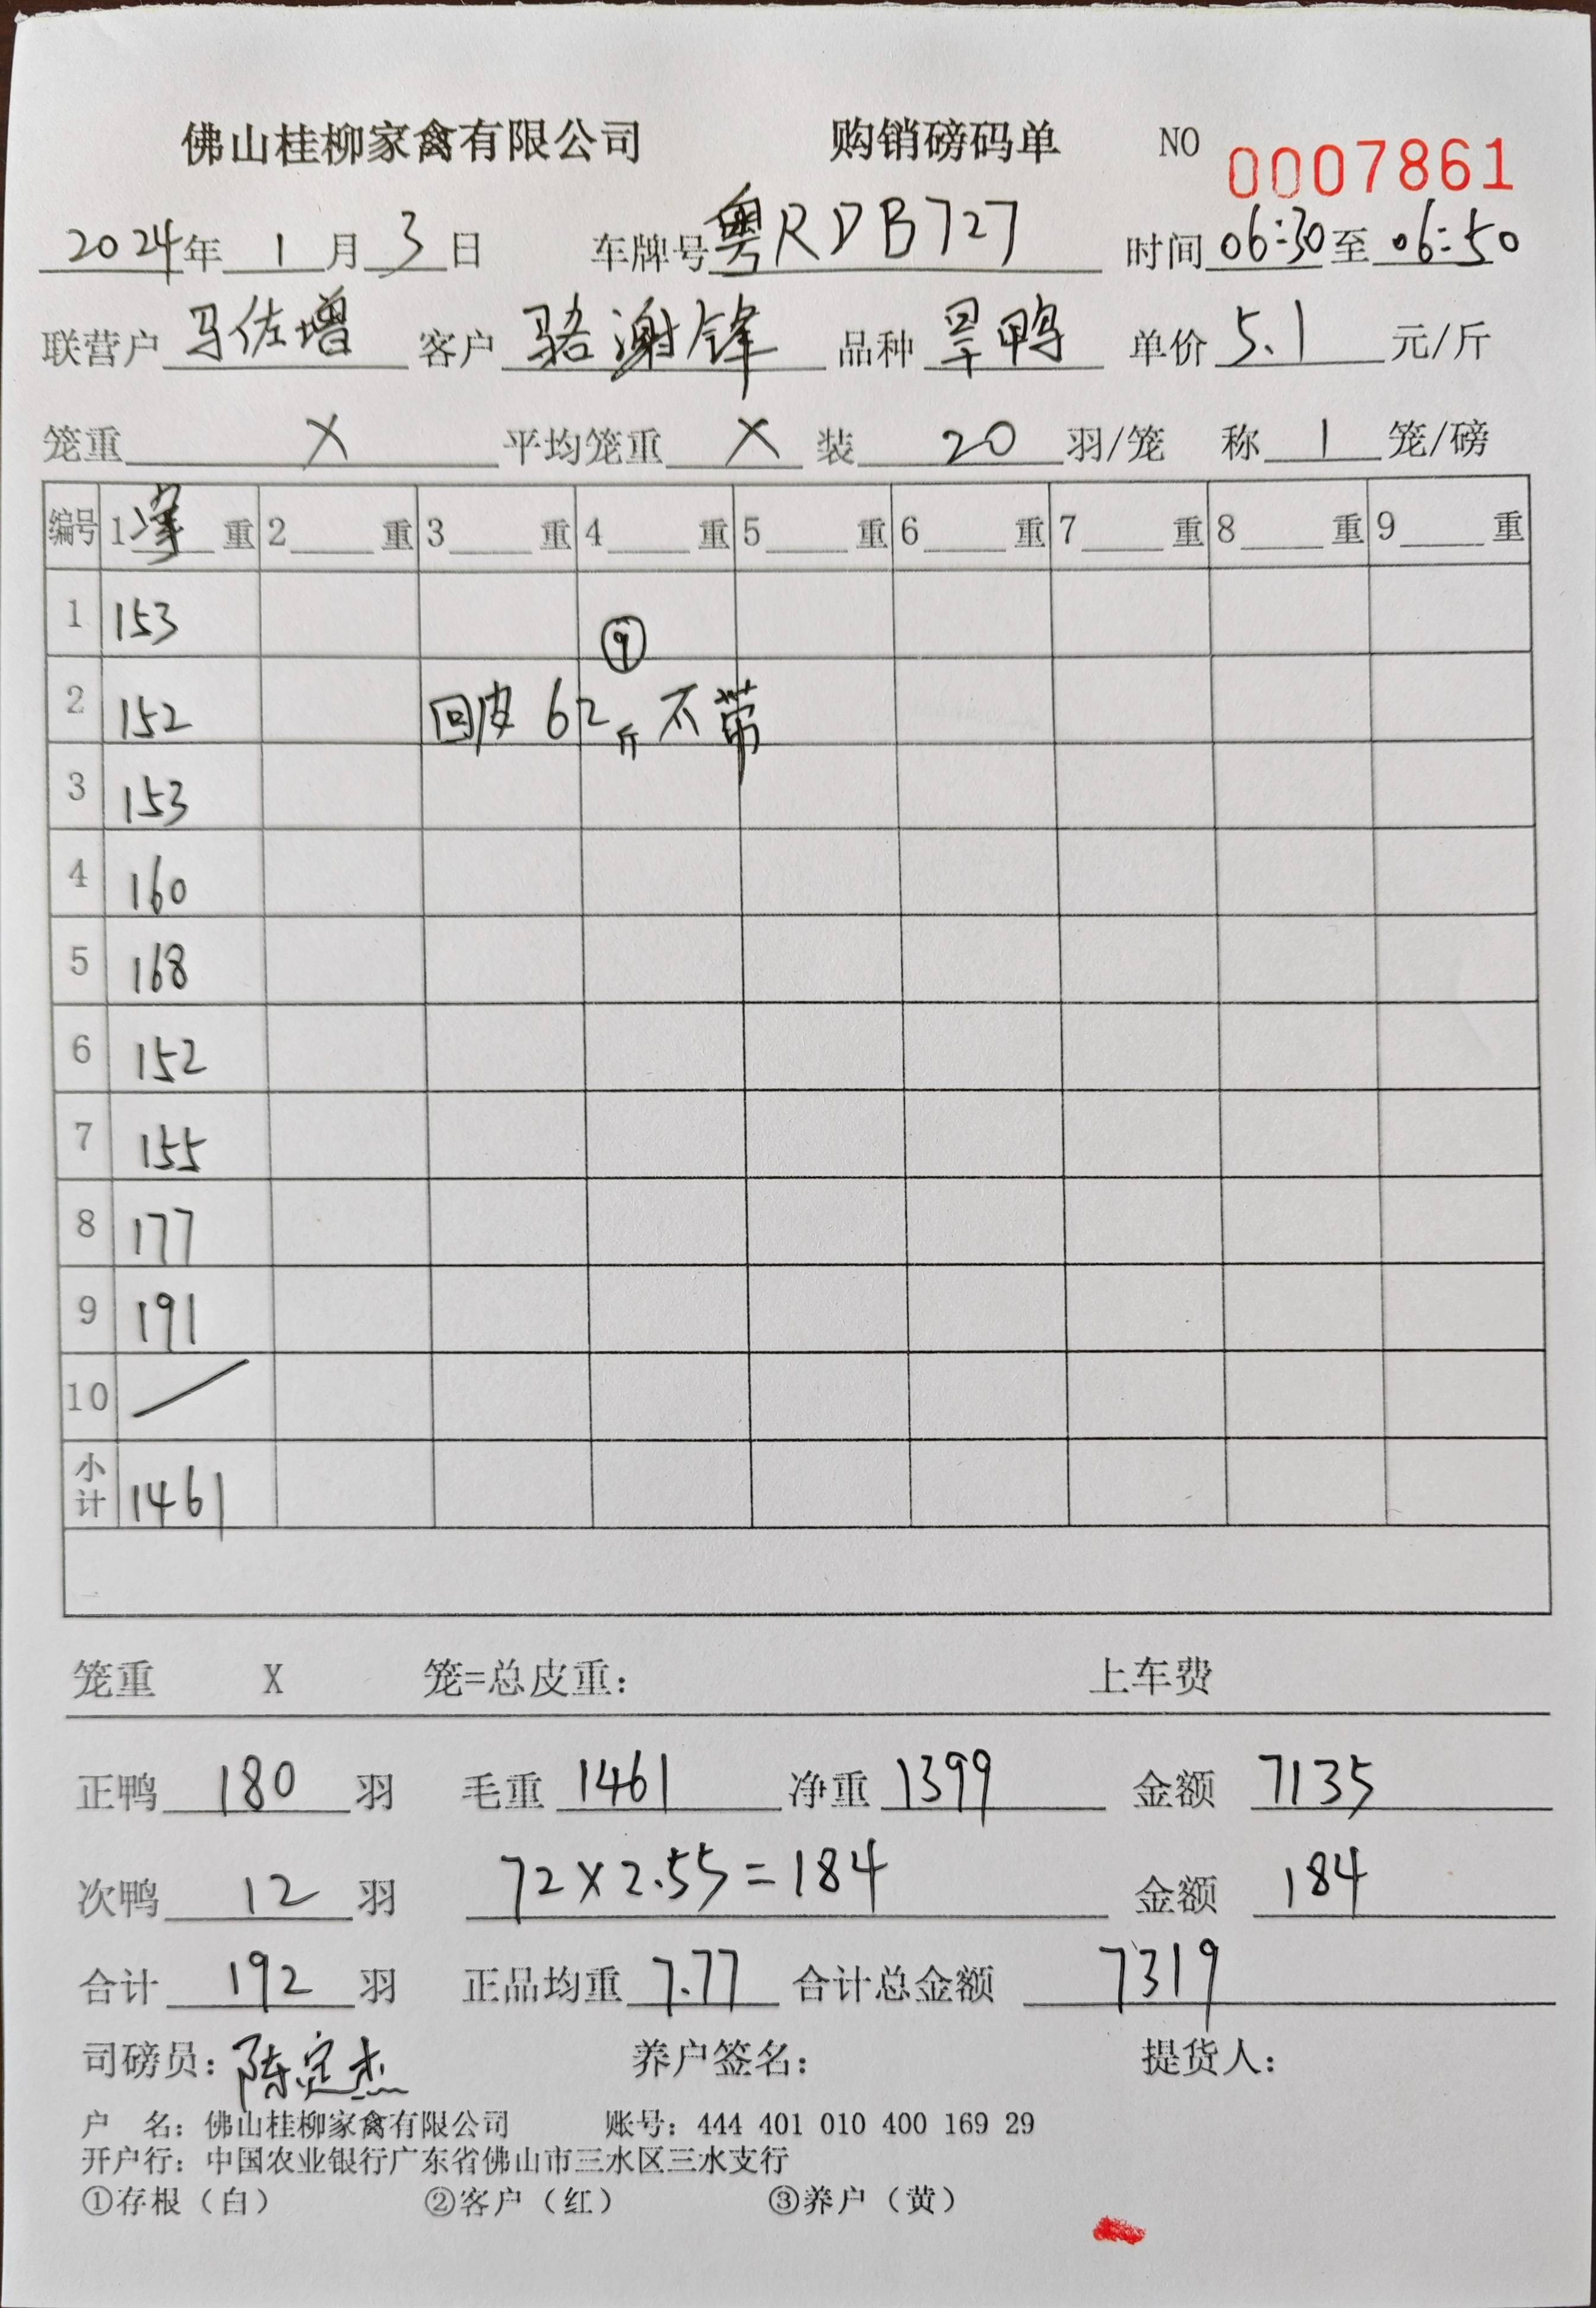 佛山桂柳家禽有限公司 购销磅码单 NO 0007861
2024年 1月 3日 车牌号 粤RDB727 时间 06:30 至 06:50
联营户 马佐增 客户 骆谢锋 品种 旱鸭 单价 5.1 元/斤
笼重 X 平均笼重 X 装 20 羽/笼 称 1 笼/磅
编号 1 重 2 重 3 重 4 重 5 重 6 重 7 重 8 重 9 重
1 153 ⑨
2 152 回皮 62斤 不带
3 153
4 160
5 168
6 152
7 155
8 177
9 191
10 /
小计 1461
笼重 X 笼=总皮重: 上车费
正鸭 180 羽 毛重 1461 净重 1399 金额 7135
次鸭 12 羽 72×2.55=184 金额 184
合计 192 羽 正品均重 7.77 合计总金额 7319
司磅员: 陈定杰 养户签名: 提货人:
户 名: 佛山桂柳家禽有限公司 账号: 444 401 010 400 169 29
开户行: 中国农业银行广东省佛山市三水区三水支行
①存根（白） ②客户（红） ③养户（黄）